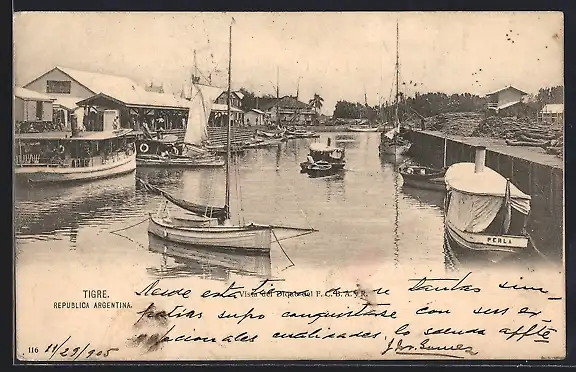 PERLA
TIGRE.
REPUBLICA ARGENTINA.
Vista del Dique del F. C. B. A. y R.
Desde esta tierra que tantas sim-
patías supo conquistarse con sus ex
cepcionales cualidades lo saluda affte
116 11/29/905